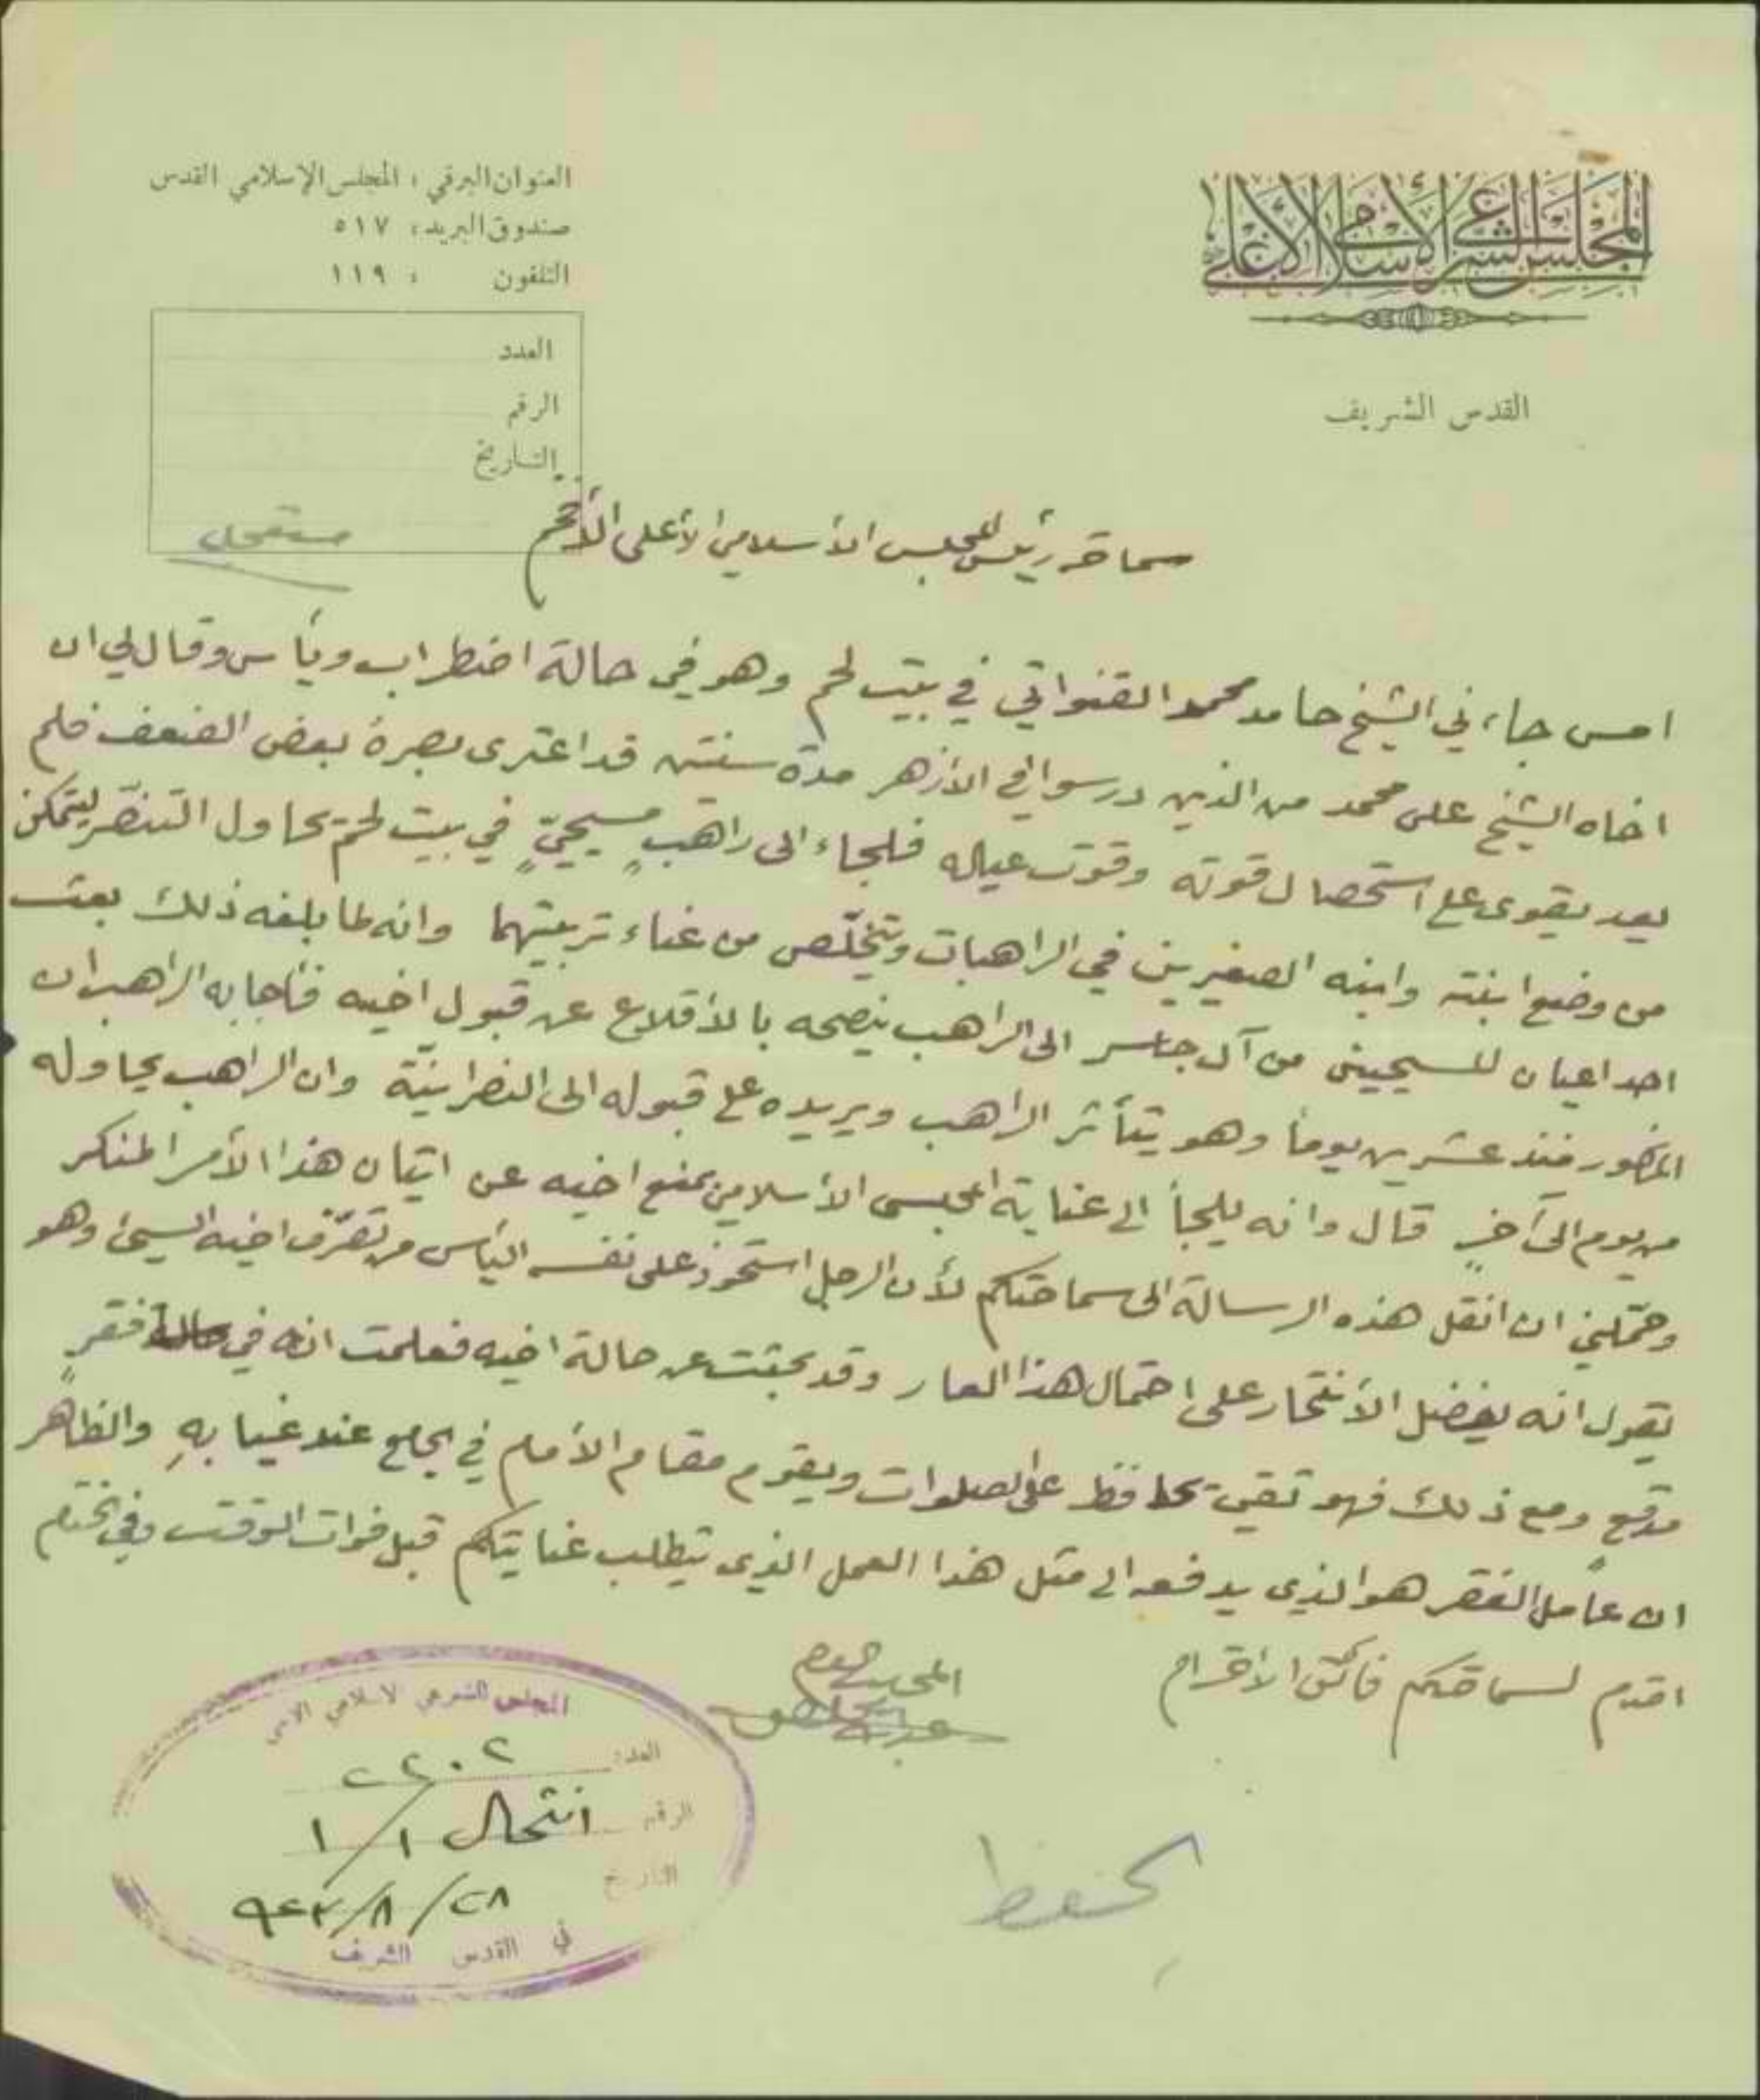 المجلس الشرعي الإسلامي الأعلى
القدس الشريف
العنوان البرقي : المجلس الإسلامي القدس
صندوق البريد : ٥١٧
التلفون : ١١٩
العدد
الرقم
التاريخ
مستعجل
سماحة رئيس المجلس الأسلامي الأعلى الأفخم
امس جاءني الشيخ حامد محمد القنواتي في بيت لحم وهو في حالة اضطراب ويأس وقال لي ان
اخاه الشيخ علي محمد من الذين درسوا في الأزهر مدة سنتين قد اعترى بصره بعض الضعف فلم
يعد يقوى على استحصال قوته وقوت عياله فلجاء الى راهبٍ مسيحيٍّ في بيت لحم يحاول التنصّر ليتمكن
من وضع ابنته وابنه الصغيرين في الراهبات ويتخلّص من عناء تربيتهما وانه لما بلغه ذلك بعث
احد اعيان المسيحيين من آل جاسر الى الراهب ينصحه بالأقلاع عن قبول اخيه فأجابه الراهب ان
المذكور منذ عشرين يوماً وهو يتأثر الراهب ويريده على قبوله الى النصرانيّة وان الراهب يحاوله
من يوم الى آخرٍ قال وانه يلجأ الى عناية المجلس الأسلامي بمنع اخيه عن اتيان هذا الأمر المنكر
وحمّلني ان انقل هذه الرسالة الى سماحتكم لأن الرجل استحوذ على نفسه اليأس من تصرّف اخيه السيئ وهو
يقول انه يفضل الأنتحار على احتمال هذا العار وقد بحثت عن حالة اخيه فعلمت انه في حالة فقرٍ
مدقع ومع ذلك فهو تقي يحافظ على الصلوات ويقوم مقام الأمام في الجامع عند غيابهِ والظاهر
ان عامل الفقر هو الذي يدفعه الى مثل هذا العمل الذي يتطلب عنايتكم قبل فوات الوقت وفي الختام
اقدم لسماحتكم فائق الأحترام
المجلس الشرعي الاسلامي الاعلى
العدد: ٢٢٠٢
الرقم انتحال ١/١
التاريخ ٢٨/٨/٩٢٣
في القدس الشريف
يحفظ